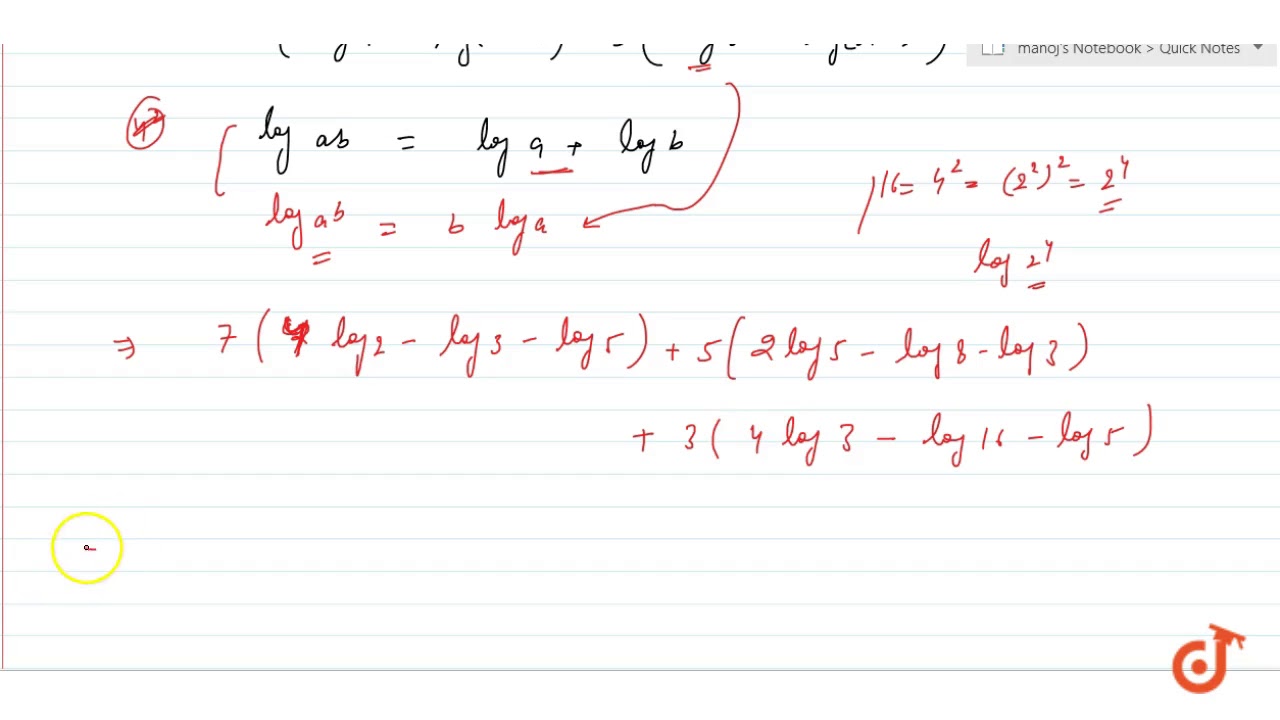 manoj's Notebook > Quick Notes
log ab = log a + log b
log a^b = b log a
16 = 4² = (2²)² = 2⁴
log 2⁴
⇒ 7 ( 4 log 2 − log 3 − log 5 ) + 5 ( 2 log 5 − log 8 - log 3 )
+ 3 ( 4 log 3 − log 16 − log 5 )